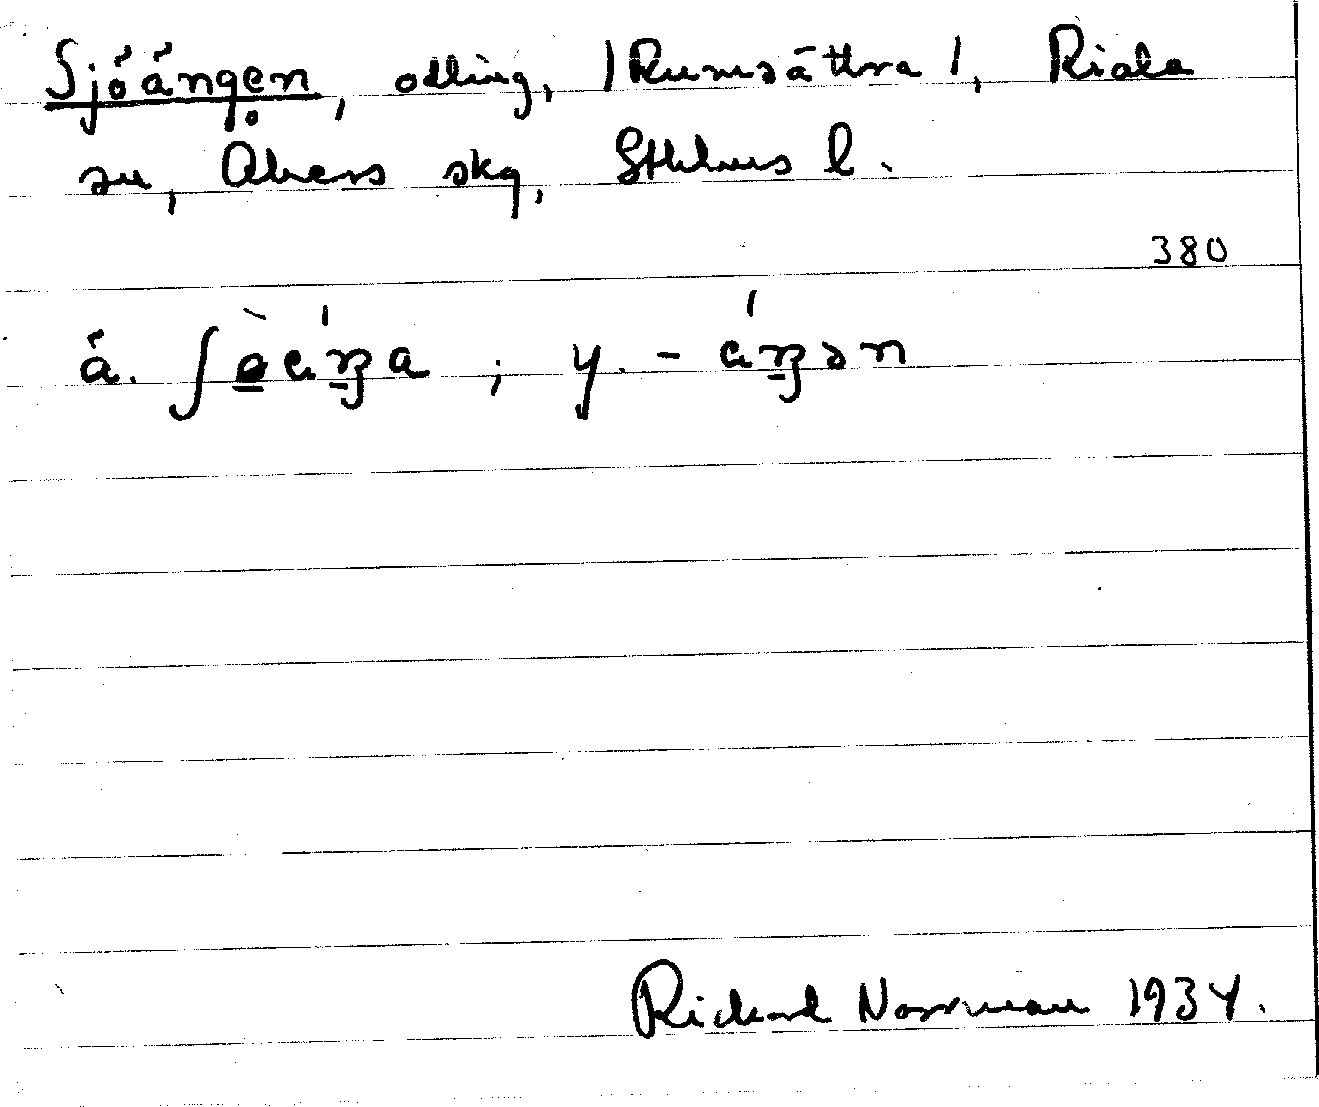 Sjöängen, odling, /Rumsättra/, Riala
sn, Åkers skg, Sthlms l.
380
ä. ʃø̀aŋ́a ; y. - aŋ́ən
Rickard Norrman 1934.